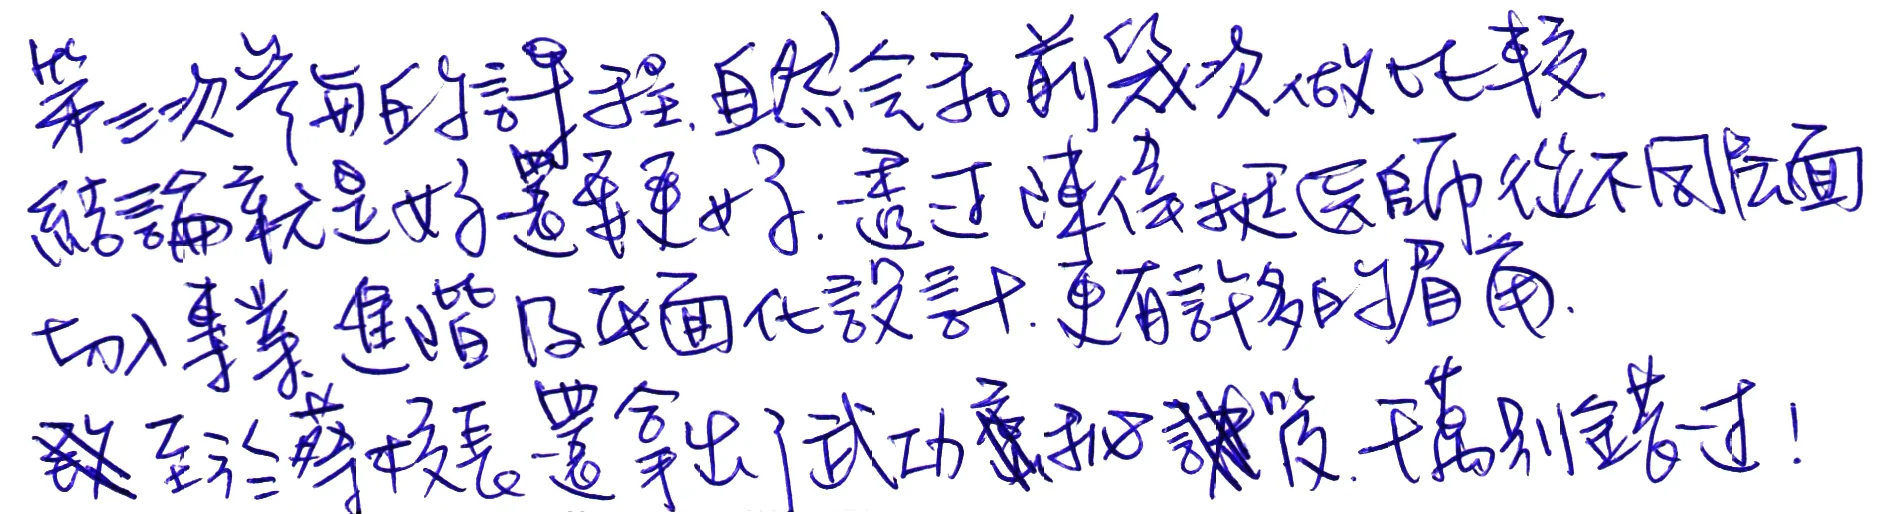 第三次參與的課程.自然会和前幾次做比較
結論就是好還要更好.透过陳俊挺医師.從不同层面
切入專業.進階及平面化設計.更有許多的眉角.
至於蔡校長還拿出了武功秘笈.千萬別錯过!